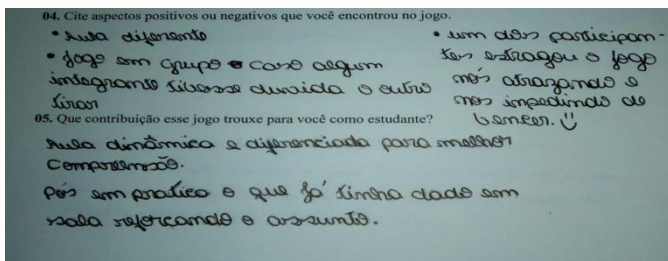 04. Cite aspectos positivos ou negativos que você encontrou no jogo.
• Aula diferente
• Jogo em grupo e caso algum
integrante tivesse duvida o outro
tirar
• um dos participan-
tes estragou o jogo
nos atrazando e
nos impedindo de
vencer. :)
05. Que contribuição esse jogo trouxe para você como estudante?
Aula dinâmica e diferenciada para melhor
compreensão.
Pós em pratica o que já tinha dado em
sala reforçando o assunto.